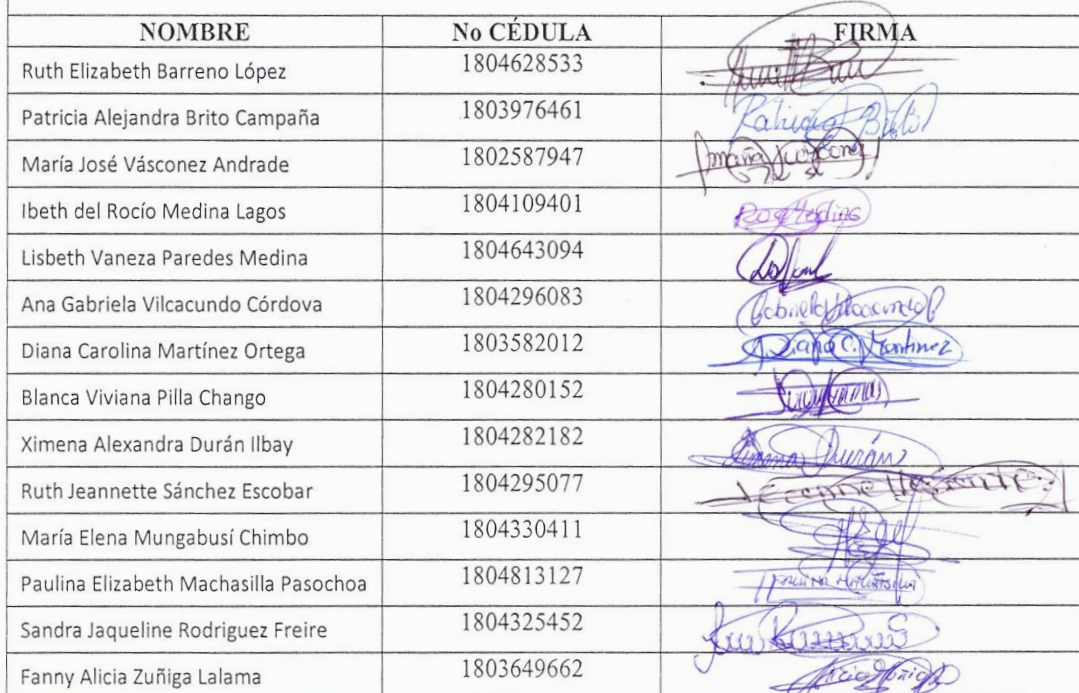 NOMBRE No CÉDULA FIRMA
Ruth Elizabeth Barreno López 1804628533
Patricia Alejandra Brito Campaña 1803976461 Patricia Brito
María José Vásconez Andrade 1802587947 maría
Ibeth del Rocío Medina Lagos 1804109401
Lisbeth Vaneza Paredes Medina 1804643094
Ana Gabriela Vilcacundo Córdova 1804296083 Gabriela Vilcacundo
Diana Carolina Martínez Ortega 1803582012 Diana C. Martinez
Blanca Viviana Pilla Chango 1804280152
Ximena Alexandra Durán Ilbay 1804282182 Ximena Durán
Ruth Jeannette Sánchez Escobar 1804295077
María Elena Mungabusí Chimbo 1804330411
Paulina Elizabeth Machasilla Pasochoa 1804813127
Sandra Jaqueline Rodriguez Freire 1804325452
Fanny Alicia Zuñiga Lalama 1803649662